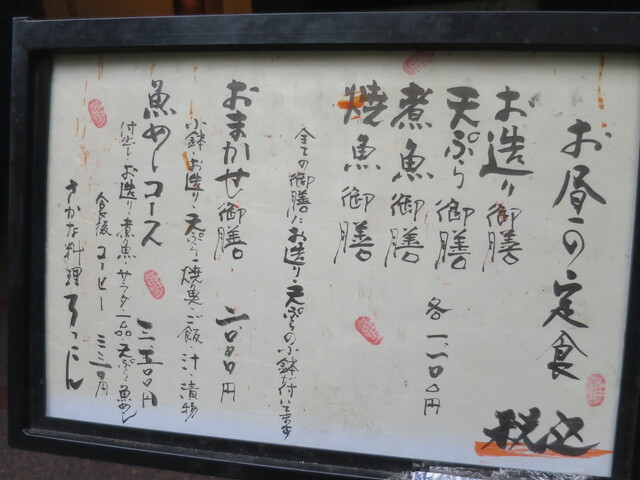 お昼の定食
税込
お造り御膳
天ぷら御膳
煮魚御膳
焼魚御膳
各一、一〇〇円
全ての御膳にお造り・天ぷらの小鉢が付いてます
おまかせ御膳 二、〇〇〇円
小鉢・お造り・天ぷら・焼魚・ご飯・汁・漬物
魚めしコース 三、五〇〇円
付出し・お造り・煮魚・サラダ・一品・天ぷら・魚めし
食後 コーヒー 三三〇円
さかな料理